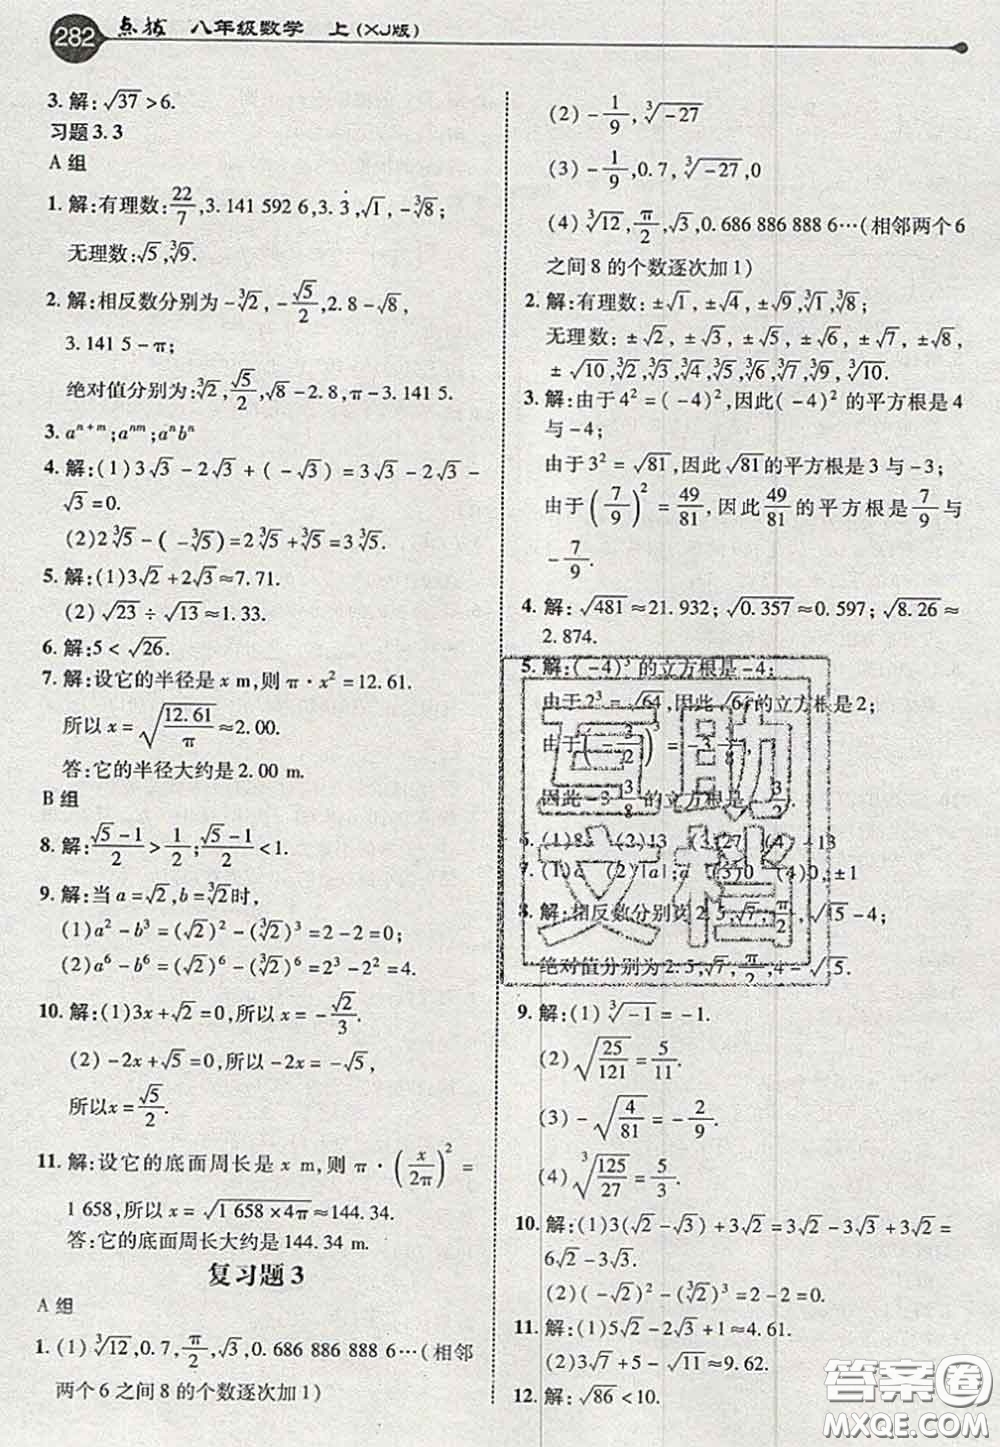 282 点拨 八年级数学 上(XJ版)
3. 解:√37>6.
习题3.3
A 组
1. 解:有理数:22/7,3.141 592 6,3.3̇,√1,-∛8;
无理数:√5,∛9.
2. 解:相反数分别为-∛2,-√5/2,2.8-√8,
3.141 5-π;
绝对值分别为:∛2,√5/2,√8-2.8,π-3.141 5.
3. aⁿ⁺ᵐ;aⁿᵐ;aⁿbⁿ
4. 解:(1)3√3-2√3+(-√3)=3√3-2√3-
√3=0.
(2)2∛5-(-∛5)=2∛5+∛5=3∛5.
5. 解:(1)3√2+2√3≈7.71.
(2)√23÷√13≈1.33.
6. 解:5<√26.
7. 解:设它的半径是 x m,则 π·x²=12.61.
所以 x=√(12.61/π)≈2.00.
答:它的半径大约是2.00 m.
B 组
8. 解:(√5-1)/2>1/2;(√5-1)/2<1.
9. 解:当 a=√2,b=∛2时,
(1)a²-b³=(√2)²-(∛2)³=2-2=0;
(2)a⁶-b⁶=(√2)⁶-(∛2)⁶=2³-2²=4.
10. 解:(1)3x+√2=0,所以 x=-√2/3.
(2)-2x+√5=0,所以-2x=-√5,
所以 x=√5/2.
11. 解:设它的底面周长是 x m,则 π·(x/2π)²=
1 658,所以 x=√(1 658×4π)≈144.34.
答:它的底面周长大约是144.34 m.
复习题3
A 组
1. (1)∛12,0.7,π/2,√3,0.686 886 888 6…(相邻
两个6之间8的个数逐次加1)
(2)-1/9,∛-27
(3)-1/9,0.7,∛-27,0
(4)∛12,π/2,√3,0.686 886 888 6…(相邻两个6
之间8的个数逐次加1)
2. 解:有理数:±√1,±√4,±√9,∛1,∛8;
无理数:±√2,±√3,±√5,±√6,±√7,±√8,
±√10,∛2,∛3,∛4,∛5,∛6,∛7,∛9,∛10.
3. 解:由于4²=(-4)²,因此(-4)²的平方根是4
与-4;
由于3²=√81,因此√81的平方根是3与-3;
由于(7/9)²=49/81,因此49/81的平方根是7/9与
-7/9.
4. 解:√481≈21.932;√0.357≈0.597;√8.26≈
2.874.
5. 解:(-4)³的立方根是-4;
由于2³=√64,因此√64的立方根是2;
由于(-3/2)³=-3
因此-3 3/8的立方根是-3/2.
6. (1)85 (2)13 (3)27 (4)-13
7. (1)a (2)|a|;a (3)0 (4)0,±1
8. 解:相反数分别为2.5,√7,π/2,√15-4;
绝对值分别为2.5,√7,π/2,4-√15.
9. 解:(1)∛-1=-1.
(2)√(25/121)=5/11.
(3)-√(4/81)=-2/9.
(4)∛(125/27)=5/3.
10. 解:(1)3(√2-√3)+3√2=3√2-3√3+3√2=
6√2-3√3.
(2)(-√2)²-(∛2)³=2-2=0.
11. 解:(1)5√2-2√3+1≈4.61.
(2)3√7+5-√11≈9.62.
12. 解:√86<10.
互助
文档
答案圈
MXQE.COM